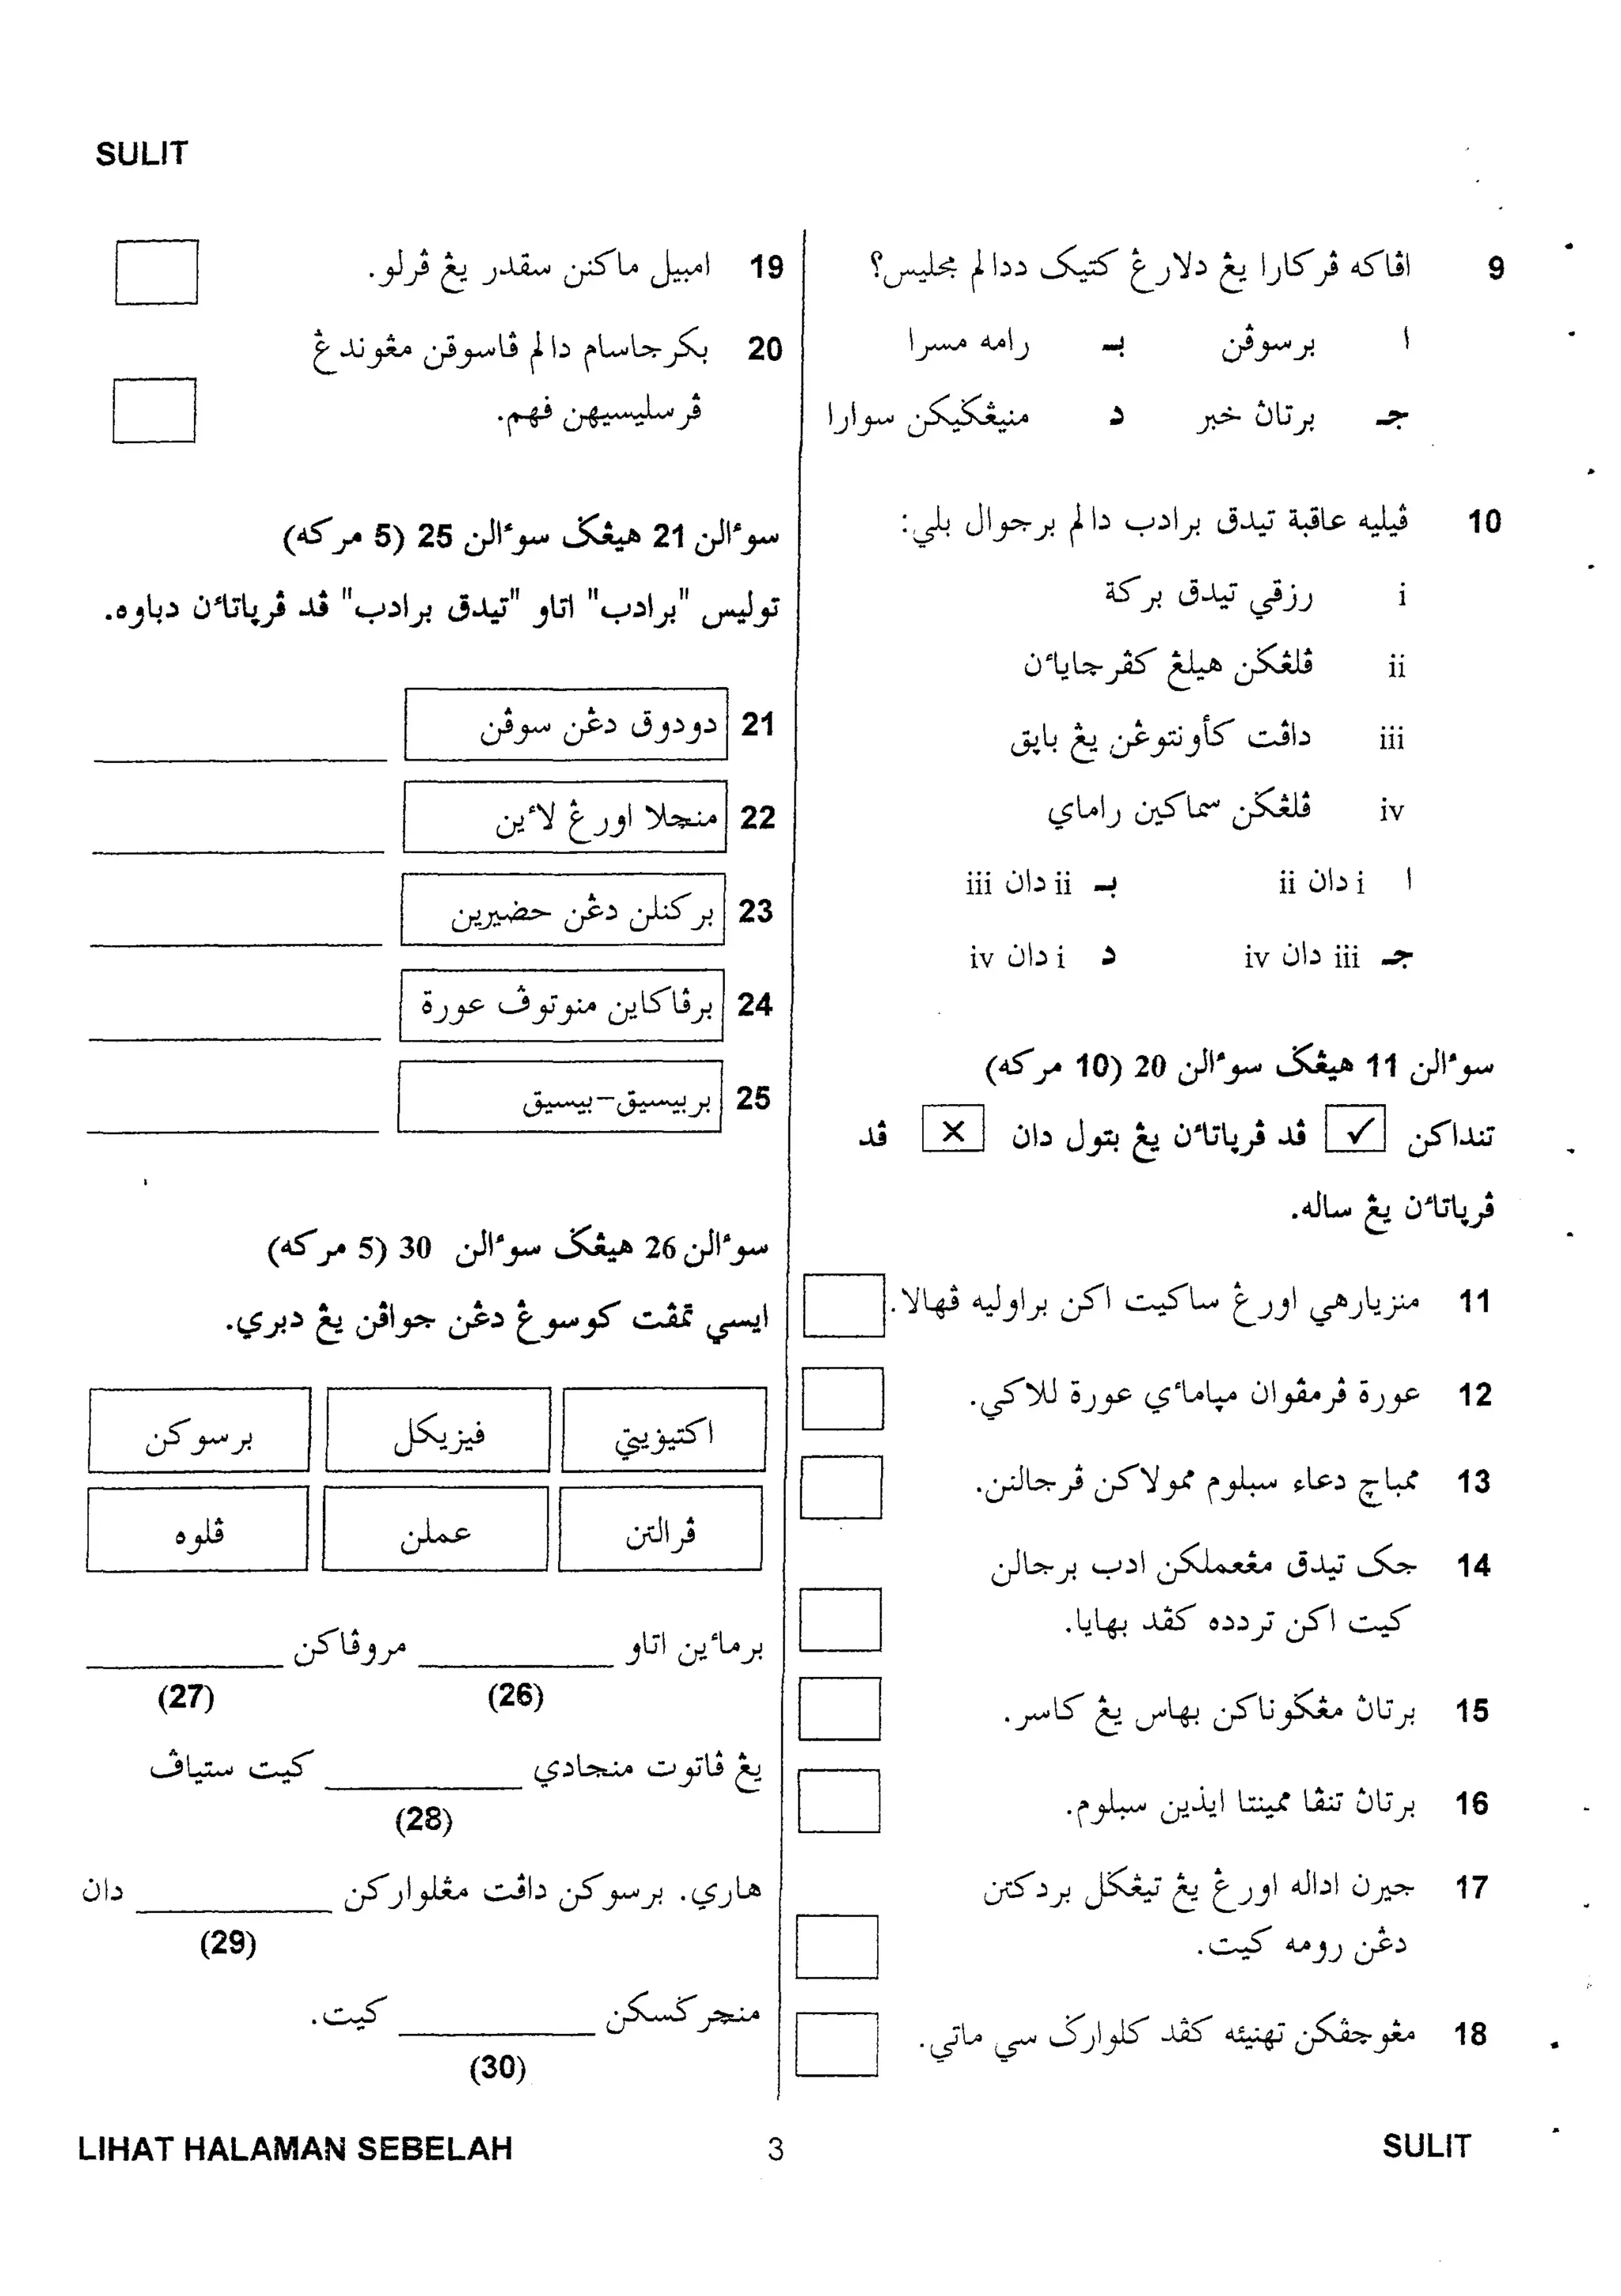 SULIT
9 اڤاکه ڤرکارا يڠ دلارڠ کتيک ددالم مجليس؟
ا برسوڤن بـ رامه مسرا
جـ برتاڽ خبر د منيڠݢيکن سوارا
10 ڤيليه عاقبة تيدق برادب دالم برجوال بلي:
i رزقي تيدق برکة
ii ڤلڠݢن هيلڠ کڤرچاياءن
iii داڤت کأونتوڠن يڠ باڽق
iv ڤلڠݢن سماکين راماي
ا i دان ii بـ ii دان iii
جـ iii دان iv د i دان iv
سوءالن 11 هيڠݢ سوءالن 20 (10 مرکه)
تنداکن ✓ ڤد ڤرڽاتاءن يڠ بتول دان X ڤد
ڤرڽاتاءن يڠ ساله.
11 منزيارهي اورڠ ساکيت اکن براوليه ڤهالا.
12 عورة ڤرمڤوان مڽاماءي عورة للاکي.
13 ممباچ دعاء سبلوم ممولاکن ڤرجالنن.
14 جک تيدق مڠعملکن ادب برجالن
کيت اکن تردده کڤد بهايا.
15 برتاڽ مڠݢوناکن بهاس يڠ کاسر.
16 برتاڽ تنڤا ممينتا ايذين سبلوم.
17 جيرن اداله اورڠ يڠ تيڠݢل بردکتن
دڠن رومه کيت.
18 مڠوچڤکن تهنيئه کڤد کلوارݢ سي ماتي.
19 امبيل ماکنن سقدر يڠ ڤرلو.
20 بکرجاسام دالم ڤاسوقن مڠوندڠ
ڤرسليسيهن فهم.
سوءالن 21 هيڠݢ سوءالن 25 (5 مرکه)
توليس "برادب" اتاو "تيدق برادب" ڤد ڤرڽاتاءن دباوه.
21 دودوق دڠن سوڤن
22 منچلا اورڠ لاءين
23 برکنلن دڠن حضيرين
24 برڤاکاين منوتوڤ عورة
25 بربيسيق-بيسيق
سوءالن 26 هيڠݢ سوءالن 30 (5 مرکه)
ايسي تمڤت کوسوڠ دڠن جواڤن يڠ دبري.
اکتيۏيتي فيزيکل برسوکن
ڤرالتن عملن ڤلوه
برماءين اتاو ____ مروڤاکن ____
(26) (27)
يڠ ڤاتوت منجادي ____ کيت ستياڤ
(28)
هاري. برسوکن داڤت مڠلوارکن ____ دان
(29)
منچرݢسکن ____ کيت.
(30)
LIHAT HALAMAN SEBELAH 3 SULIT